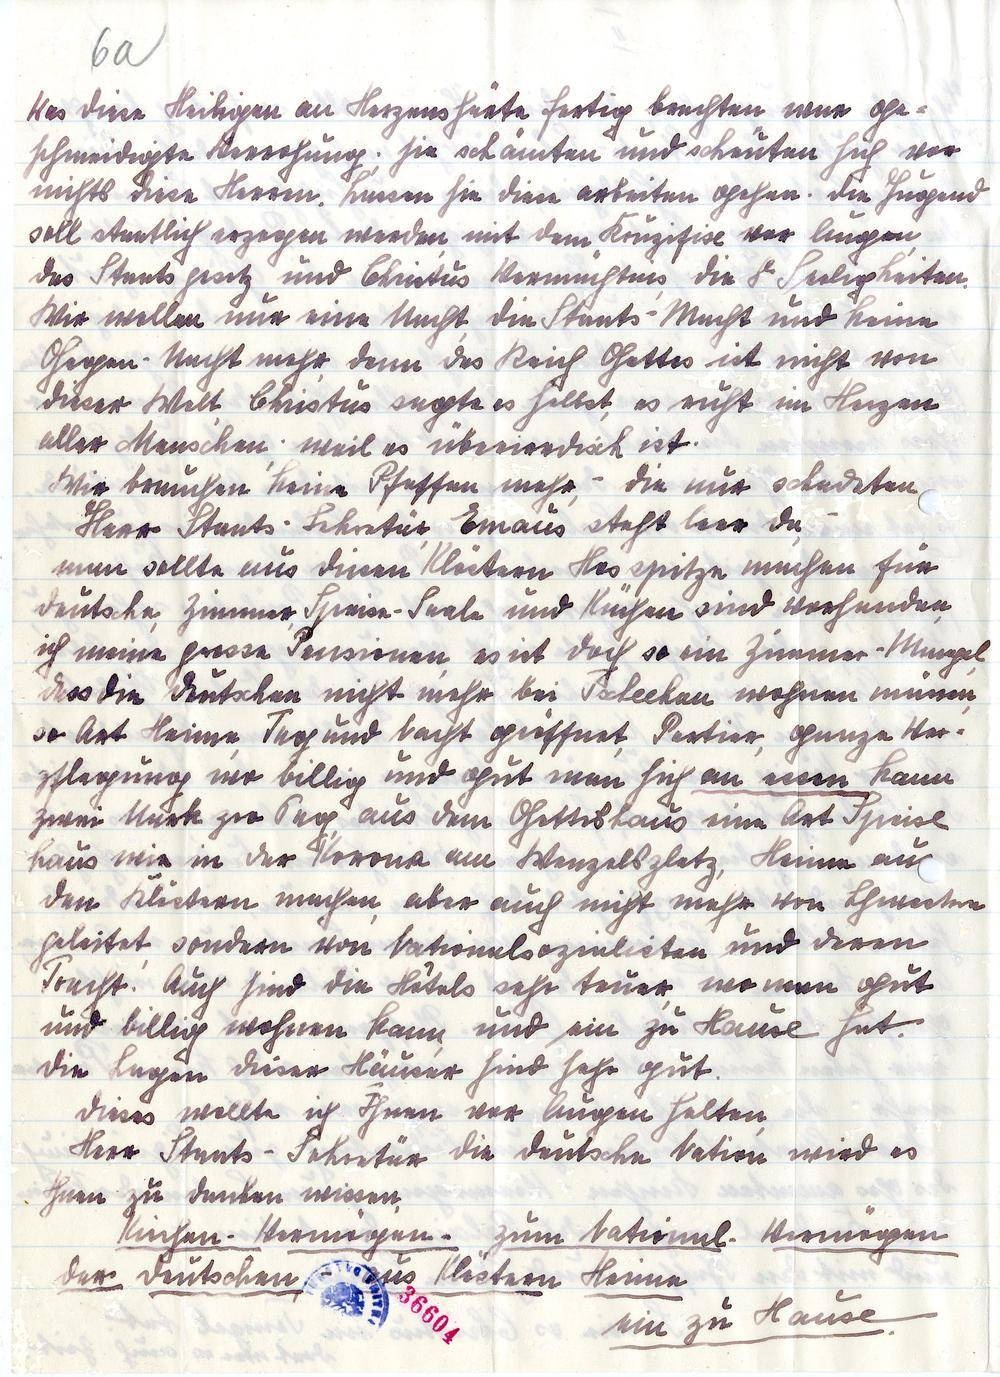 6a
Was diese Heiligen an Herzenshärte fertig brachten war ge-
schmeidigte Verrohung. Sie schämten und scheuten sich vor
nichts diese Herren. Lassen Sie diese arbeiten gehen. Die Jugend
soll staatlich erzogen werden, mit dem Kruzifixe vor Augen,
das Staatsgesetz und Christus Vermächtnis, die 8 Seeligkeiten.
Wir wollen nur eine Macht, die Staats-Macht und keine
Gegen-Macht mehr, denn das Reich Gottes ist nicht von
dieser Welt Christus sagte es selbst, es ruht im Herzen
aller Menschen, weil es überirdisch ist.
Wir brauchen keine Pfaffen mehr, - die nur schadeten
Herr Staats-Sekretär, Emaus steht leer da,
man sollte aus diesen Klöstern Hosspitze machen für
Deutsche, Zimmer, Speise-Saale und Küchen sind vorhanden,
ich meine grosse Pensionen, es ist doch so ein Zimmer-Mangel,
dass die Deutschen nicht mehr bei Tschechen wohnen müssen,
so Art Heime, Tag und Nacht geöffnet, Portier, ganze Ver-
pflegung wo billig und gut man sich an essen kann
zwei Mark pro Tag aus dem Gotteshaus eine Art Speise
haus wie in der Korona am Wenzelsplatz, Heime aus
den Klöstern machen, aber auch nicht mehr von Schwestern
geleitet, sondern von Nationalsozialisten und deren
Tracht! Auch sind die Hôtels sehr teuer, wo man gut
und billig wohnen kann, und ein zu Hause hat.
Die Lagen dieser Häuser sind sehr gut.
Dieses wollte ich Ihnen vor Augen halten,
Herr Staats-Sekretär die Deutsche Nation wird es
Ihnen zu danken wissen,
Kirchen-Vermögen- zum National-Vermögen
der Deutschen, aus Klöstern Heime
36604
ein zu Hause.